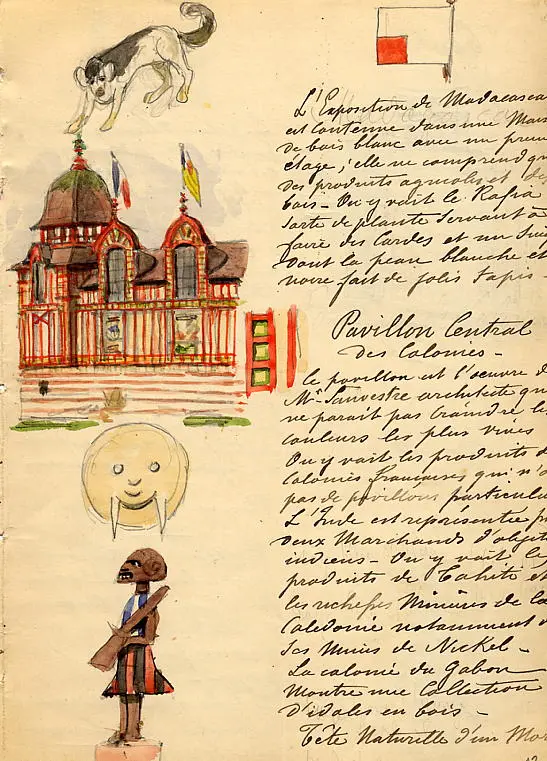 L'Exposition de Madagasca
est contenue dans une Mais
de bois blanc avec un prem
étage ; elle ne comprend qu
des produits agricoles et des
bois - On y voit le Rafia
sorte de plante servant à
faire des cordes et un
Dont la peau blanche et
noire fait de jolis tapis -
Pavillon Central
des Colonies -
Le pavillon est l'oeuvre d
Mr Sauvestre architecte qu
ne parait pas craindre le
couleurs les plus vives
On y voit les produits d
Colonies françaises qui n'o
pas de pavillons particulie
L'Inde est représentée p
deux Marchands d'objets
indiens - On y voit les
produits de Tahiti et
les richesses Minières de la
Calédonie notamment d
Ses Mines de Nickel -
La colonie du Gabon
Montre une Collection
D'idoles en bois -
Tête Naturelle d'un Mor